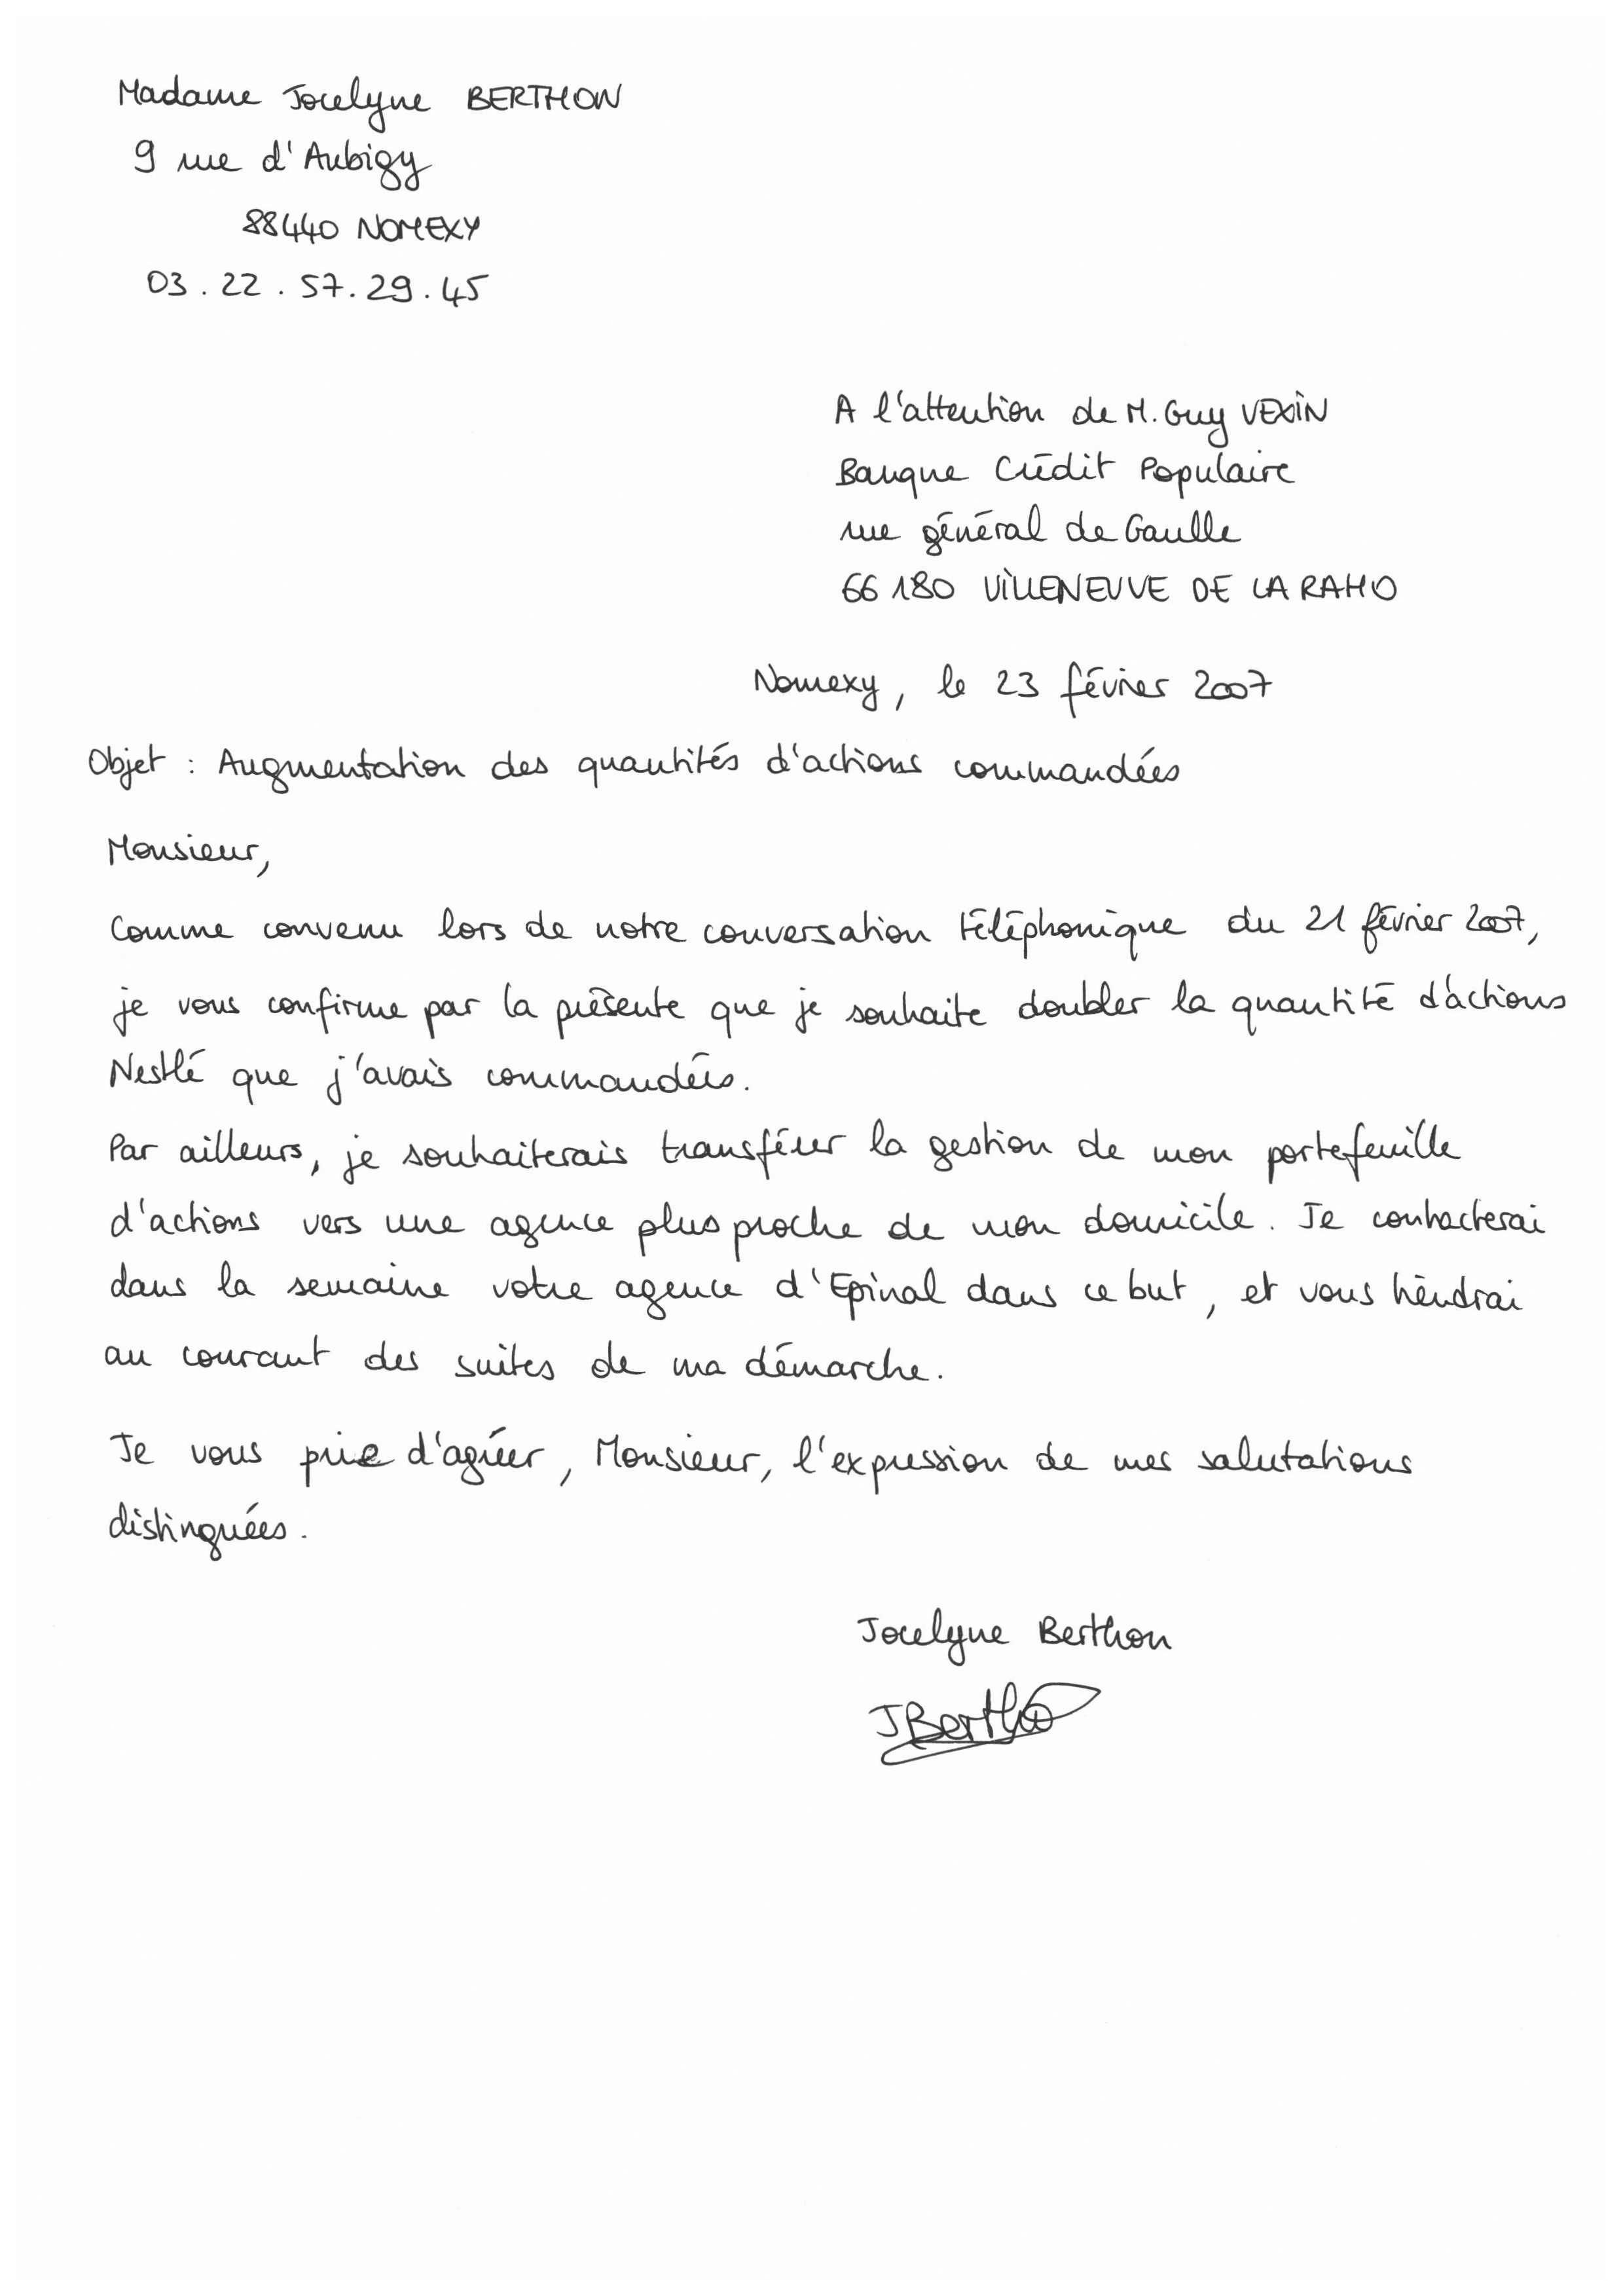 Madame Jocelyne BERTHON
9 rue d'Aubigy
88440 NOMEXY
03.22.57.29.45
A l'attention de M. Guy VEXIN
Banque Crédit Populaire
rue général de Gaulle
66180 VILLENEUVE DE LA RAHO
Nomexy, le 23 février 2007
Objet : Augmentation des quantités d'actions commandées
Monsieur,
Comme convenu lors de notre conversation téléphonique du 21 février 2007,
je vous confirme par la présente que je souhaite doubler la quantité d'actions
Nestlé que j'avais commandées.
Par ailleurs, je souhaiterais transférer la gestion de mon portefeuille
d'actions vers une agence plus proche de mon domicile. Je contacterai
dans la semaine votre agence d'Epinal dans ce but, et vous tiendrai
au courant des suites de ma démarche.
Je vous prie d'agréer, Monsieur, l'expression de mes salutations
distinguées.
Jocelyne Berthon
JBertho